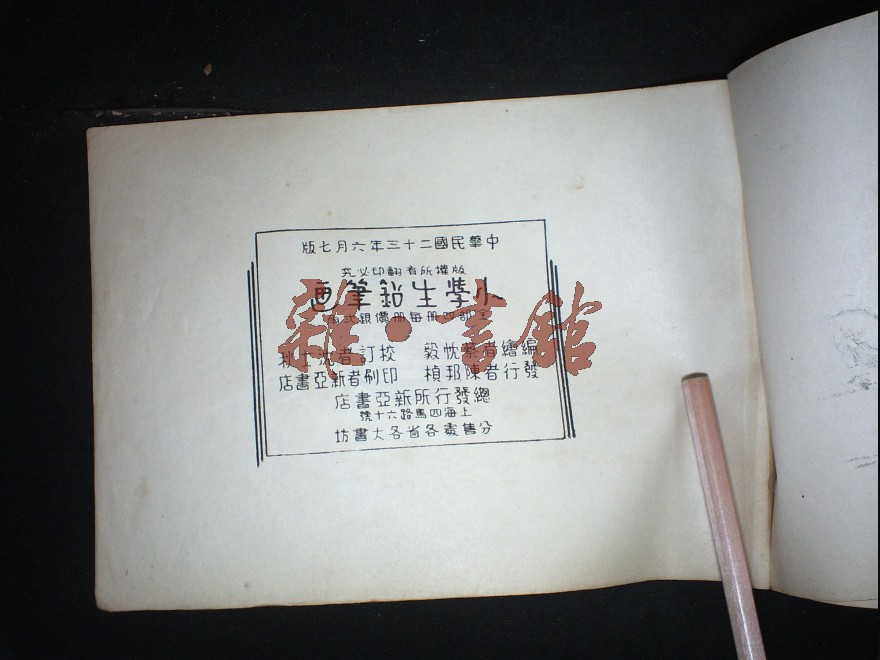 中華民國二十三年六月七版
版權所有翻印必究
小學生鉛筆画
全部四册每册價銀弍角
編繪者蔡忱毅 校訂者沈士秋
發行者陳邦楨 印刷者新亞書店
總發行所新亞書店
上海四馬路六十號
分售處各省各大書坊
雜·書館